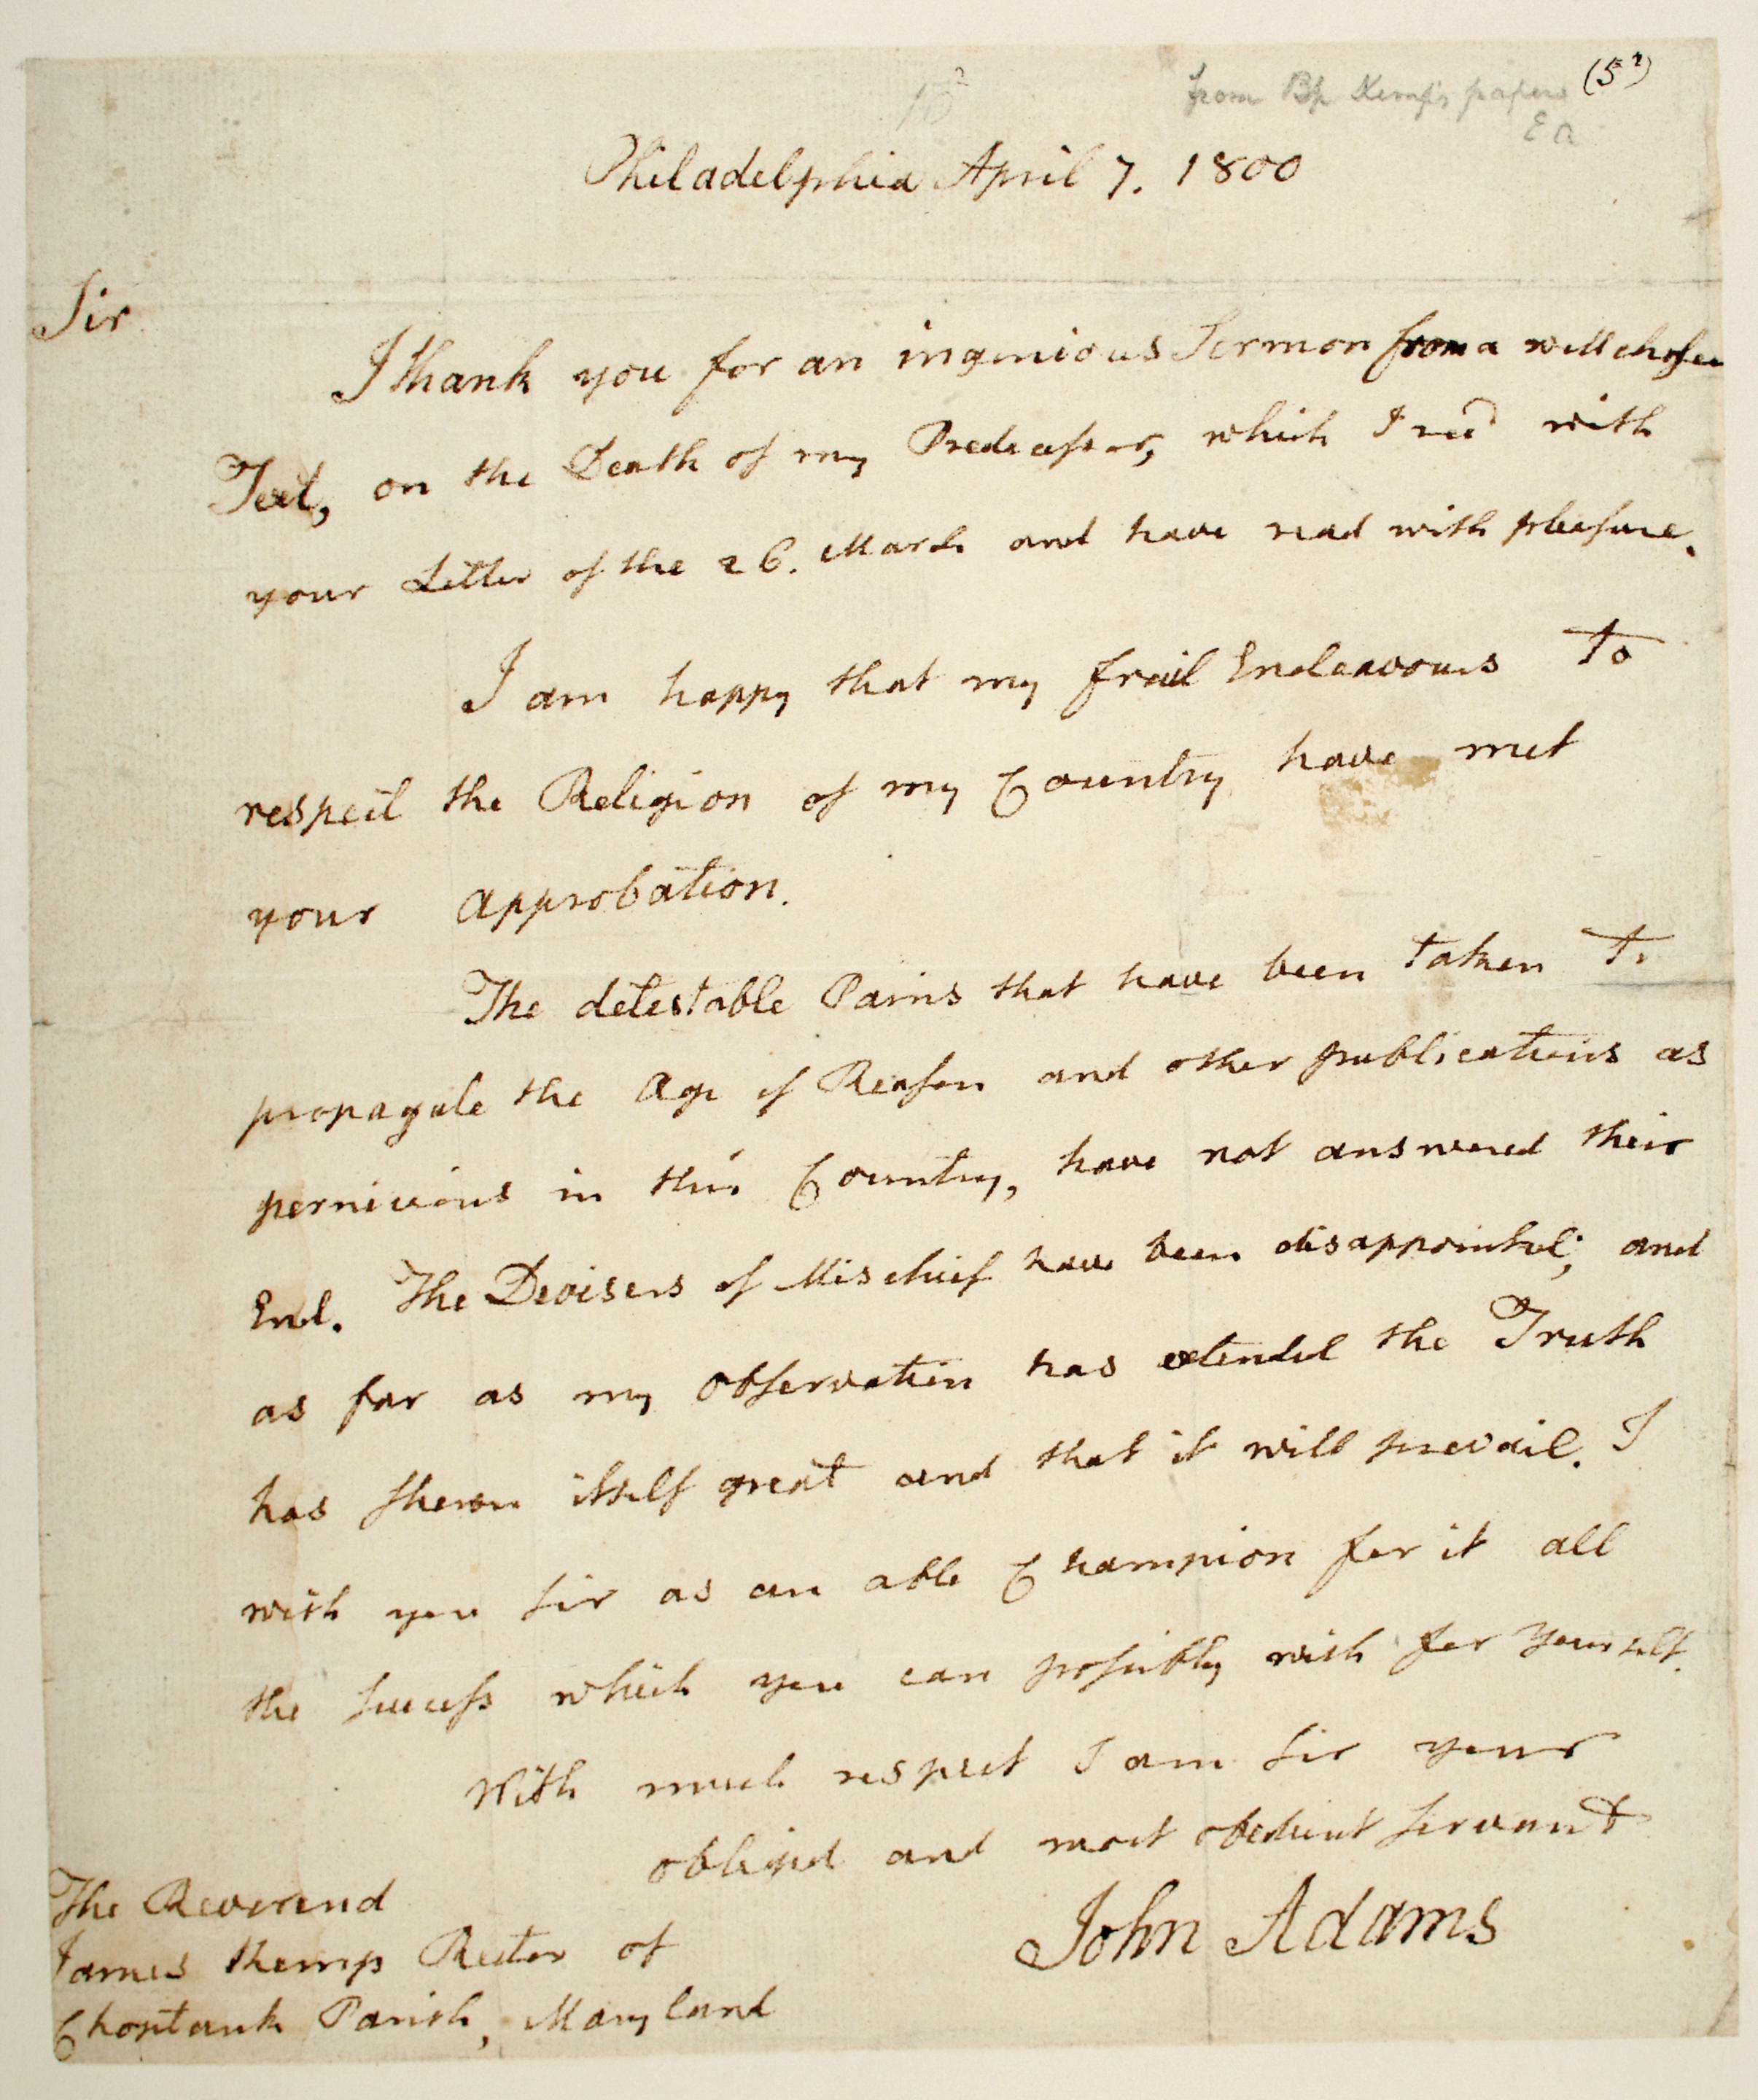 from Bp Kemp's papers (5?)
E A
Philadelphia April 7. 1800
Sir
I thank you for an ingenious Sermon from a well chosen
Text, on the Death of my Predecessor, which I recd with
your Letter of the 26. March and have read with pleasure.
I am happy that my frail Endeavours to
respect the Religion of my Country have met
your approbation.
The detestable Pains that have been taken to
propagate the Age of Reason and other publications as
pernicious in this Country, have not answered their
End. The Devisers of Mischief have been disappointed; and
as far as my observation has extended the Truth
has shewn itself great and that it will prevail. I
wish you Sir as an able Champion for it all
the success which you can possibly wish for yourself.
With much respect I am Sir your
obliged and most obedient Servant
John Adams
The Reverend
James Kemp Rector of
Choptank Parish, Maryland